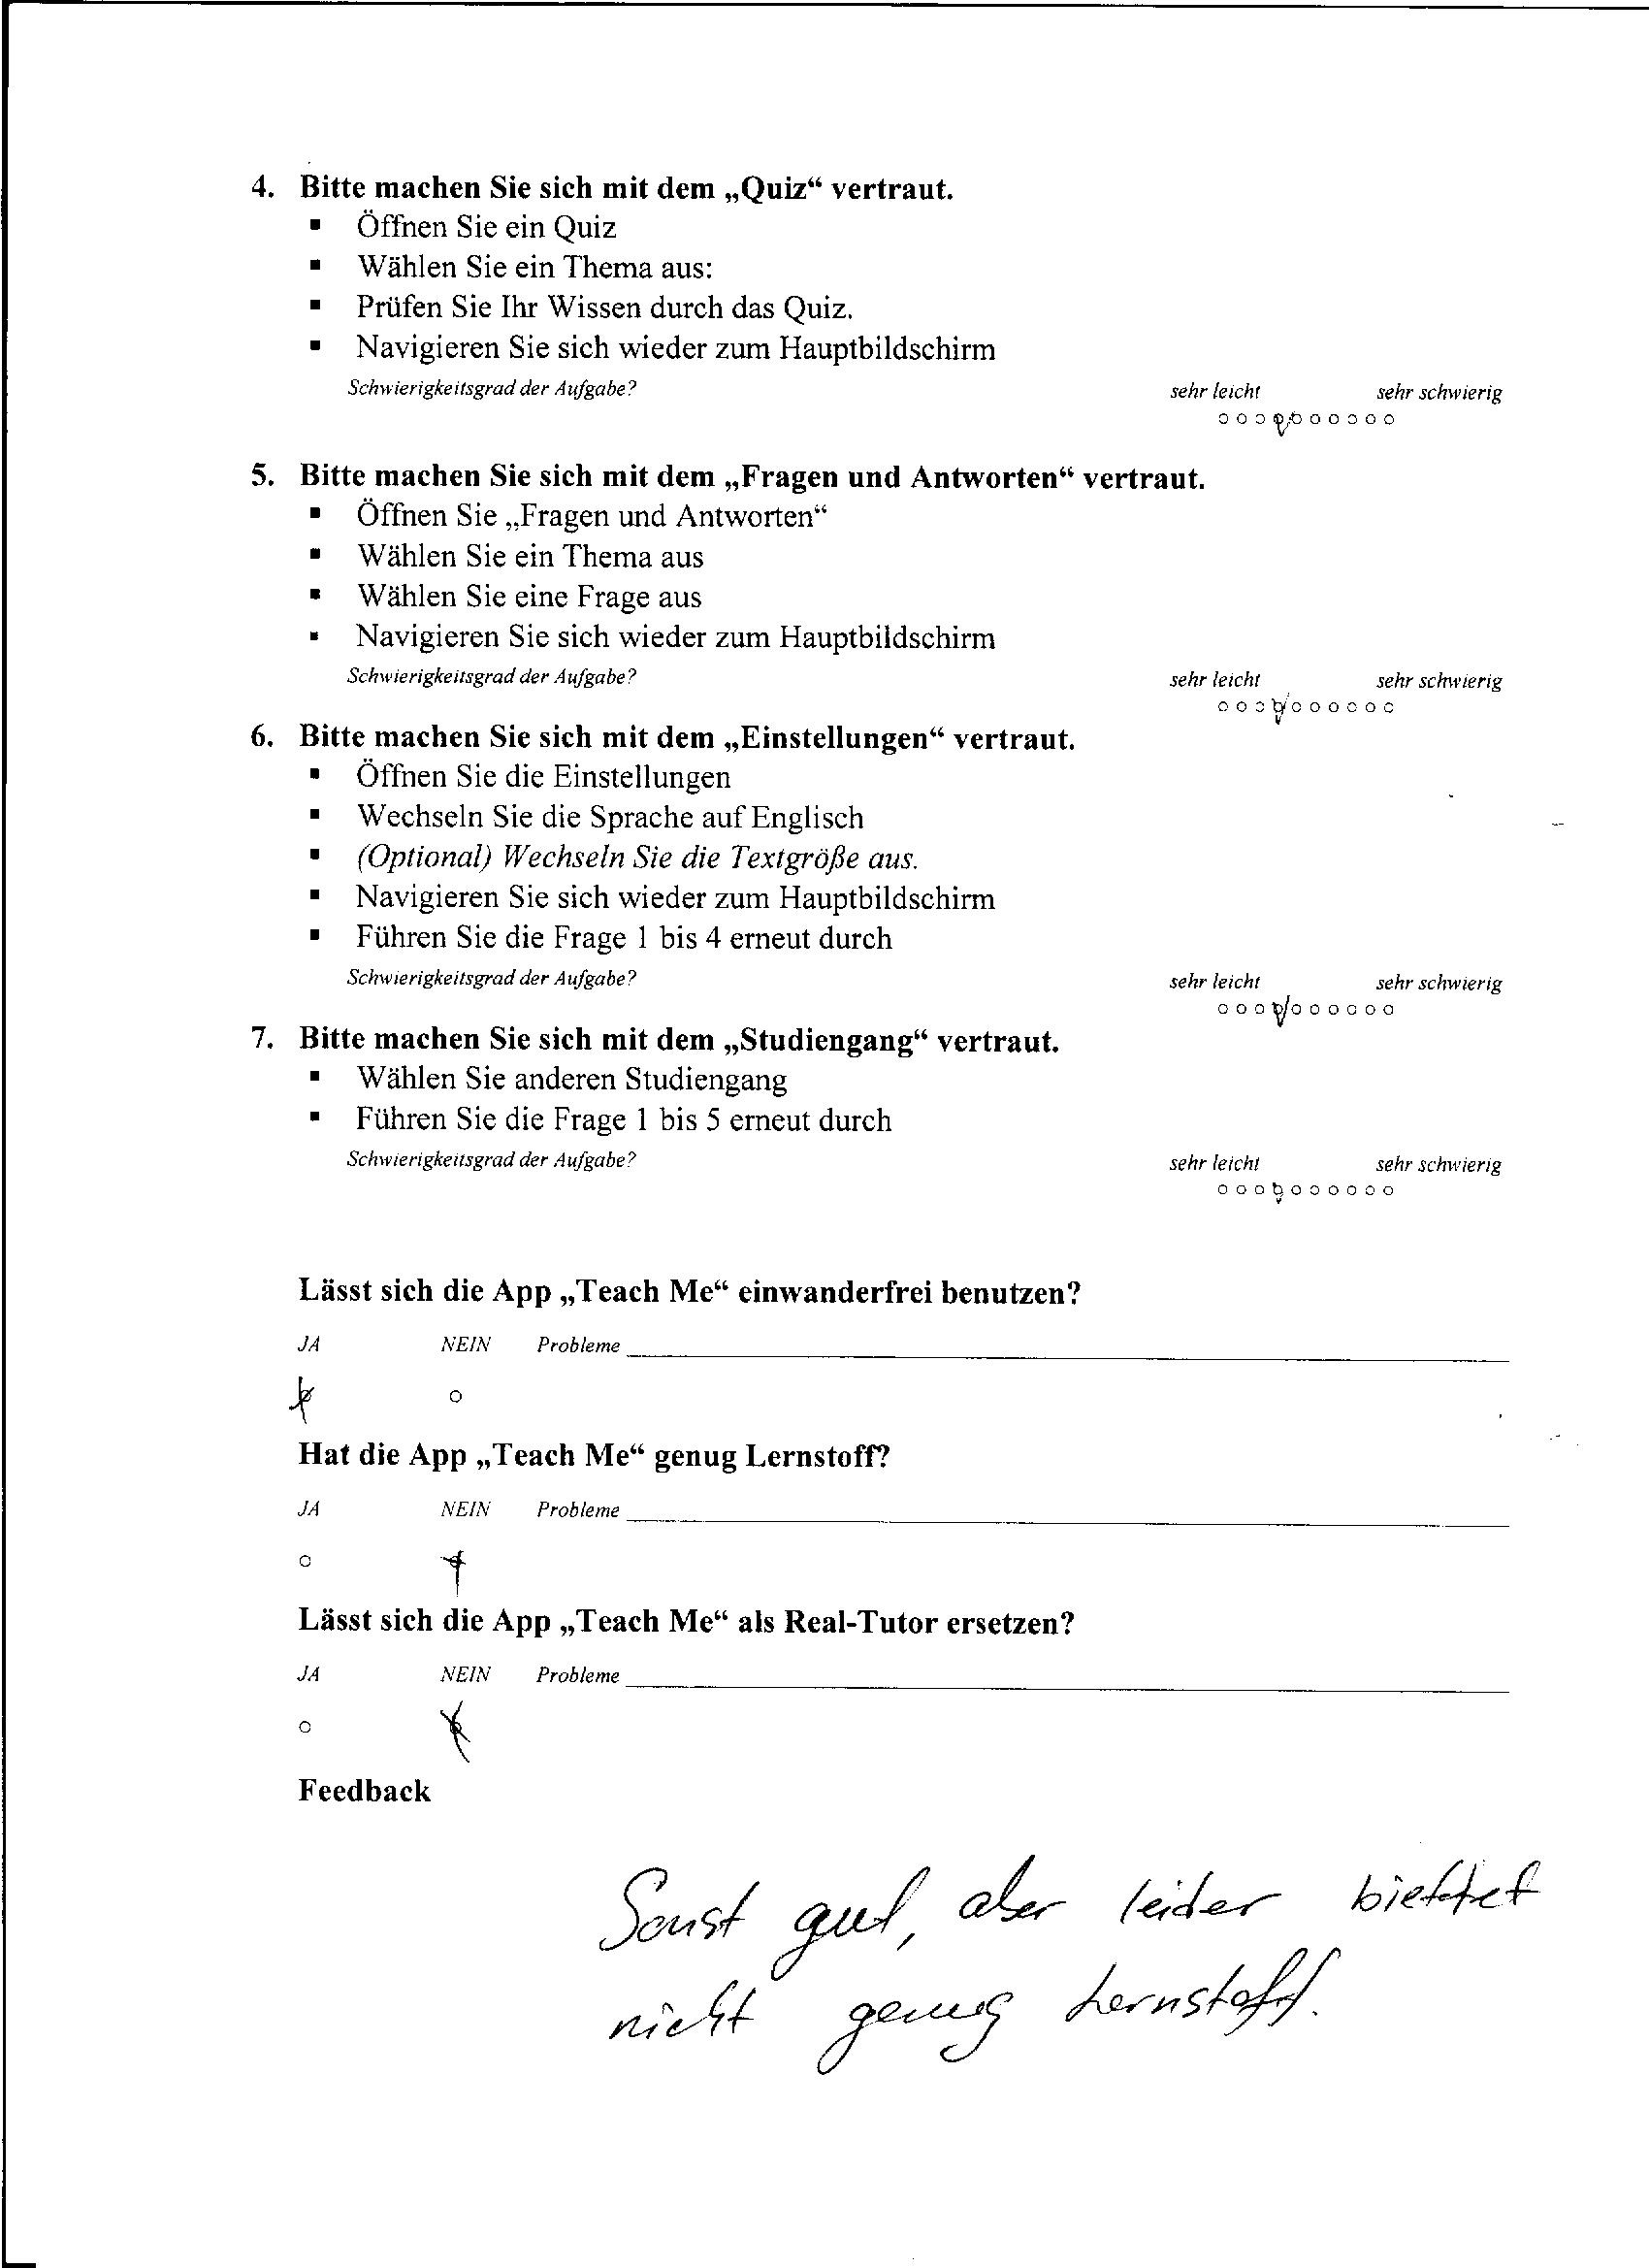 4. Bitte machen Sie sich mit dem „Quiz“ vertraut.
▪ Öffnen Sie ein Quiz
▪ Wählen Sie ein Thema aus:
▪ Prüfen Sie Ihr Wissen durch das Quiz.
▪ Navigieren Sie sich wieder zum Hauptbildschirm
Schwierigkeitsgrad der Aufgabe? sehr leicht sehr schwierig
5. Bitte machen Sie sich mit dem „Fragen und Antworten“ vertraut.
▪ Öffnen Sie „Fragen und Antworten“
▪ Wählen Sie ein Thema aus
▪ Wählen Sie eine Frage aus
▪ Navigieren Sie sich wieder zum Hauptbildschirm
Schwierigkeitsgrad der Aufgabe? sehr leicht sehr schwierig
6. Bitte machen Sie sich mit dem „Einstellungen“ vertraut.
▪ Öffnen Sie die Einstellungen
▪ Wechseln Sie die Sprache auf Englisch
▪ (Optional) Wechseln Sie die Textgröße aus.
▪ Navigieren Sie sich wieder zum Hauptbildschirm
▪ Führen Sie die Frage 1 bis 4 erneut durch
Schwierigkeitsgrad der Aufgabe? sehr leicht sehr schwierig
7. Bitte machen Sie sich mit dem „Studiengang“ vertraut.
▪ Wählen Sie anderen Studiengang
▪ Führen Sie die Frage 1 bis 5 erneut durch
Schwierigkeitsgrad der Aufgabe? sehr leicht sehr schwierig
Lässt sich die App „Teach Me“ einwanderfrei benutzen?
JA NEIN Probleme
Hat die App „Teach Me“ genug Lernstoff?
JA NEIN Probleme
Lässt sich die App „Teach Me“ als Real-Tutor ersetzen?
JA NEIN Probleme
Feedback
Sonst gut, aber leider biettet
nicht genug Lernstoff.